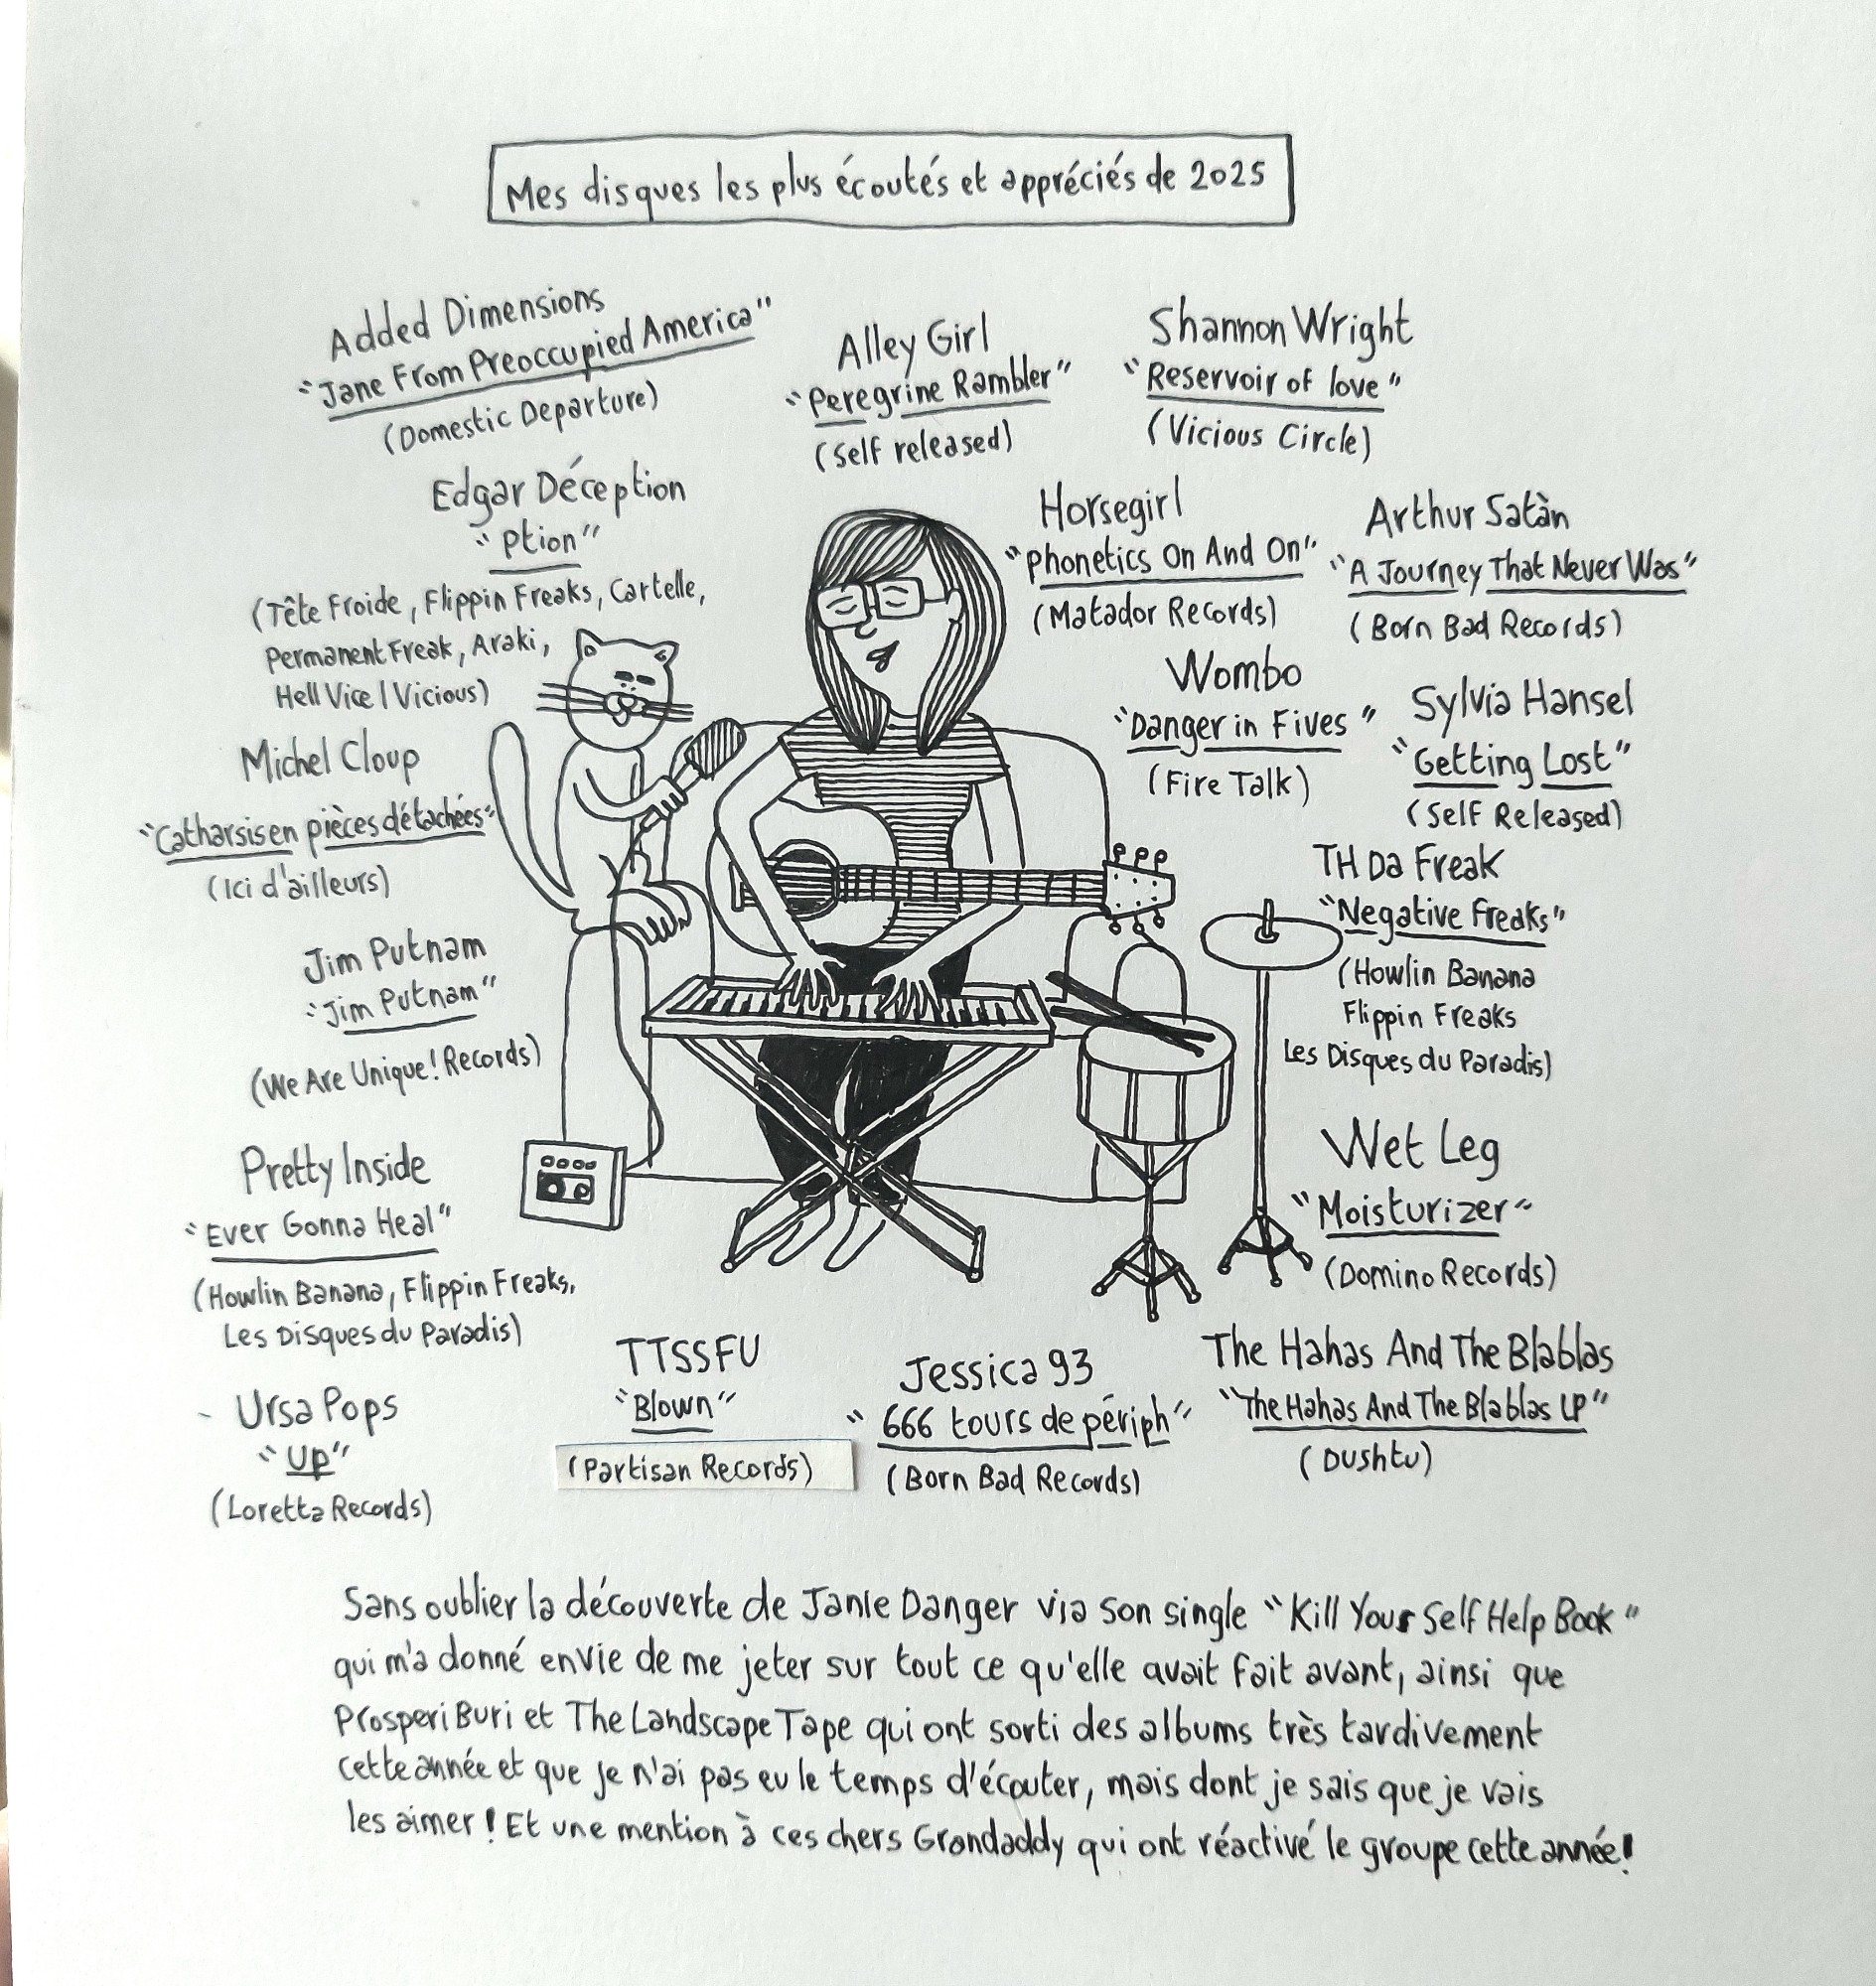 Mes disques les plus écoutés et appréciés de 2025
Added Dimensions
"Jane From Preoccupied America"
(Domestic Departure)
Alley Girl
"Peregrine Rambler"
(Self released)
Shannon Wright
"Reservoir of love"
(Vicious Circle)
Edgar Déception
"Ption"
(Tête Froide, Flippin Freaks, Cartelle,
Permanent Freak, Araki,
Hell Vice / Vicious)
Horsegirl
"Phonetics On And On"
(Matador Records)
Arthur Satàn
"A Journey That Never Was"
(Born Bad Records)
Wombo
"Danger in Fives"
(Fire Talk)
Sylvia Hansel
"Getting Lost"
(Self Released)
Michel Cloup
"Catharsis en pièces détachées"
(Ici d'ailleurs)
TH Da Freak
"Negative Freaks"
(Howlin Banana
Flippin Freaks
Les Disques du Paradis)
Jim Putnam
"Jim Putnam"
(We Are Unique! Records)
Wet Leg
"Moisturizer"
(Domino Records)
Pretty Inside
"Ever Gonna Heal"
(Howlin Banana, Flippin Freaks,
Les Disques du Paradis)
Ursa Pops
"Up"
(Loretta Records)
TTSSFU
"Blown"
(Partisan Records)
Jessica 93
"666 tours de périph"
(Born Bad Records)
The Hahas And The Blablas
"The Hahas And The Blablas LP"
(Dushtu)
Sans oublier la découverte de Janie Danger via son single "Kill Your Self Help Book"
qui m'a donné envie de me jeter sur tout ce qu'elle avait fait avant, ainsi que
Prosperi Buri et The Landscape Tape qui ont sorti des albums très tardivement
cette année et que je n'ai pas eu le temps d'écouter, mais dont je sais que je vais
les aimer ! Et une mention à ces chers Grandaddy qui ont réactivé le groupe cette année !